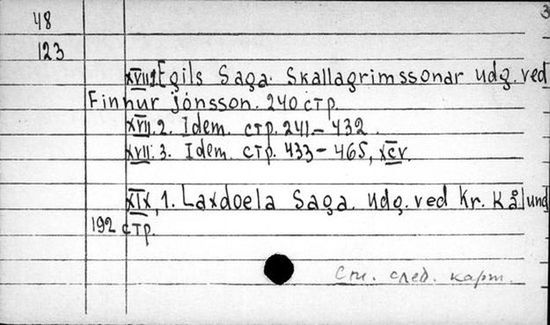 48 3
123
XVII.1 Egils Saga. Skallagrimssonar udg. ved
Finnur jónsson. 240 стр.
XVII.2. Idem. стр. 241-432.
XVII.3. Idem. стр. 433-465, XCV.
XIX, 1. Laxdoela Saga. udg. ved Kr. Kålund
192 стр.
См. след. карт.